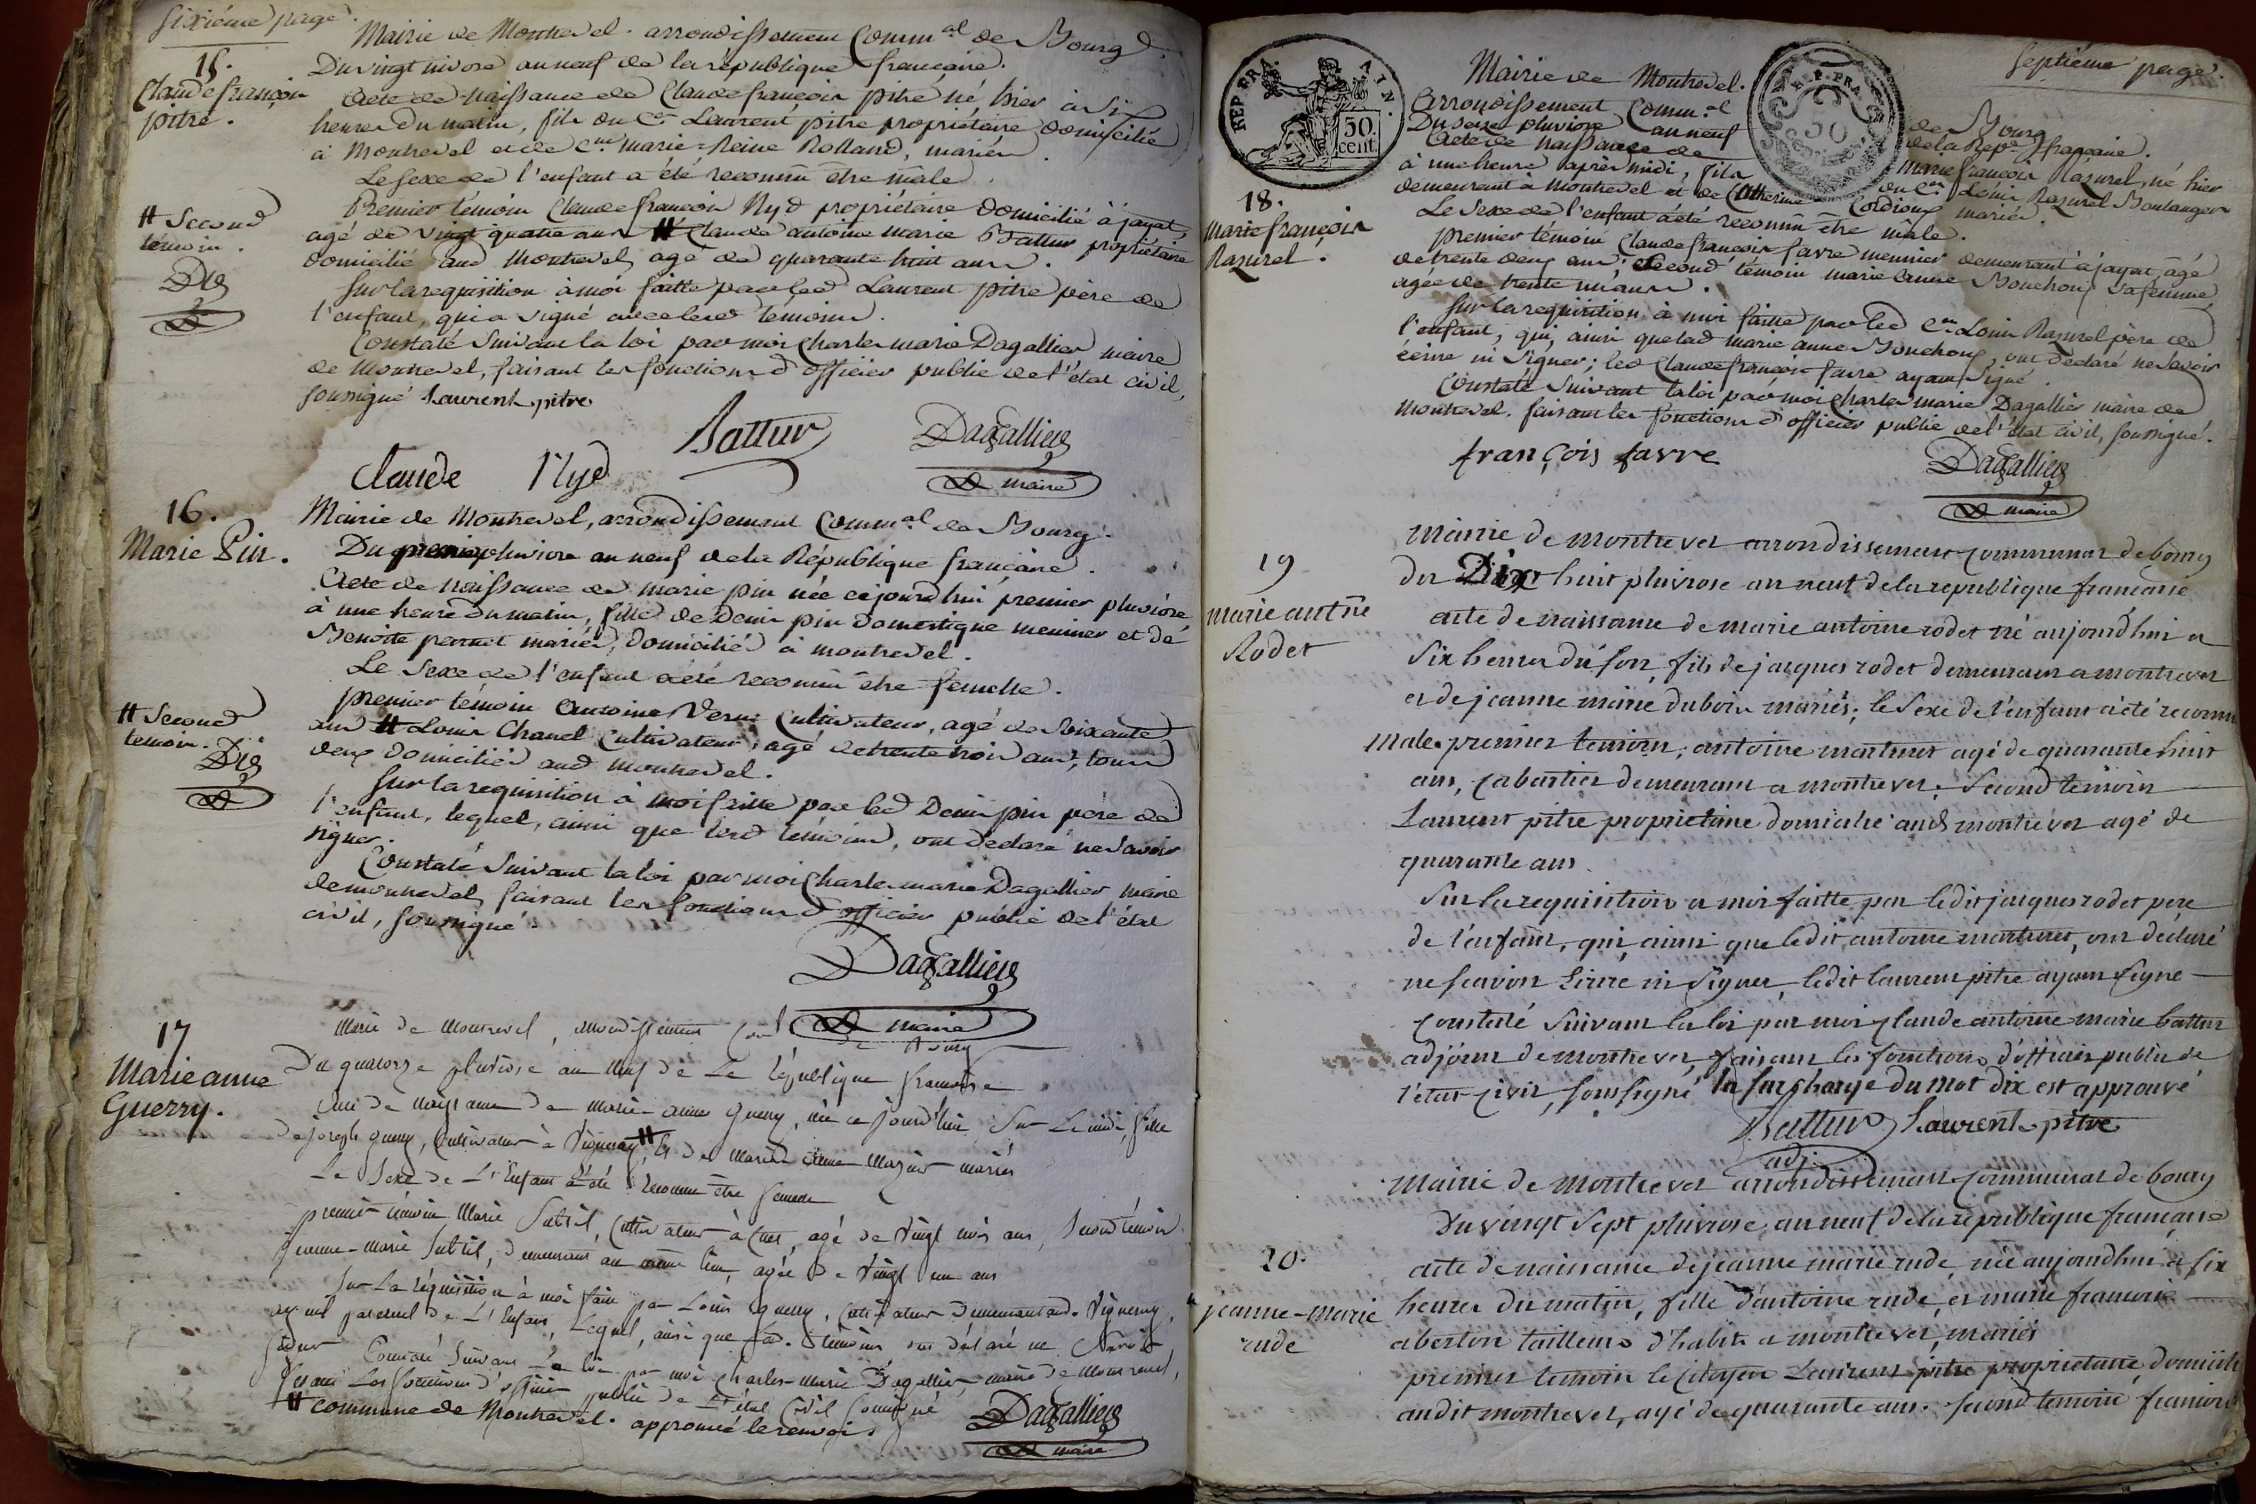 Sixiéme page.
15.
Claude françois
pitre.
Mairie de Montrevel. arrondissement Comm.al de Bourg
Du vingt nivose an neuf de la république française.
Acte de naissance de Claude françois pitre né hier à six
heures du matin, fils du C.en Laurent pitre propriétaire domicilié
à Montrevel et de C.ne marie-Reine Rolland, mariés.
Le sexe de l'enfant a été reconnu être mâle.
Premier témoin Claude françois Nyd propriétaire domicilié à jayat,
agé de vingt quatre ans # Claude antoine marie Battur propriétaire
domicilié aud Montrevel, agé de quarante huit ans.
# Second
témoin.
Dr
Sur la requisition à moi faitte par led Laurent pitre père de
l'enfant, qui a signé avec lesd témoins.
Constaté suivant la loi par moi Charles marie Dagallier maire
de Montrevel, faisant les fonctions d'officier public de l'état civil,
soussigné Laurent pitre
Battur Dagallier
Claude Nyd
maire
16.
Marie Pin.
Mairie de Montrevel, arrondissement Comm.al de Bourg.
Du premier pluviose an neuf de la République française.
Acte de naissance de marie pin née cejourd'hui premier pluviose
à une heure du matin, fille de Denis pin domestique meunier et de
Benoite pernet mariés, domiciliés à montrevel.
Le Sexe de l'enfant a été reconnu être femelle.
premier témoin Antoine Verne Cultivateur, agé de soixante
ans # Louis Chanel Cultivateur, agé de trente trois ans, tous
deux domiciliés aud montrevel.
# Second
temoin.
Dr
Sur la requisition à moi faitte par led Denis pin père de
l'enfant, lequel, ainsi que lesd témoins, ont déclaré ne savoir
signer.
Constaté suivant la loi par moi Charles marie Dagallier maire
de montrevel, faisant les fonctions d'officier public de l'état
civil, soussigné
Dagallier
maire
17
Marie anne
Guerry.
Mairie de Montrevel, arrondissement Com.al de Bourg
Du quatorze pluviose an neuf de La République française
Acte de Naissance de marie-anne guerry, née ce jourd'hui Sur Le midi, fille
de joseph guerry, Cultivateur à Vignerey # et de marie anne mazuir mariés
Le Sexe de L'Enfant a été reconnu être femelle
premier témoin Marie Subtil, Cultivateur à Cuet, agé de Vingt trois ans, Second témoin
jeanne-marie Subtil, demeurant au même lieu, agée de Vingt un ans
Sur La réquisition à moi faite par Louis guerry, Cultivateur demeurant aud. Vignerey,
ayeul paternel de L'Enfant, Lequel, ainsi que Lesd. témoins ont déclaré ne Savoir
Signer Constaté suivant La loi par moi Charles-marie Dagallier maire de Montrevel,
faisant Les fonctions d'officier public de L'état Civil soussigné
# commune de Montrevel. approuvé le renvoi.
Dagallier
maire
Septiéme page.
REP. FRA. AIN.
50.
cent.
REP. FRA.
50
18.
Marie françois
Razurel.
Mairie de Montrevel.
Arrondissement Comm.al de Bourg
Du seize pluviose an neuf de la Répe. française.
Acte de naissance de Marie françois Razurel, né hier
à une heure après midi, fils du C.en Louis Razurel Boulanger
demeurant à Montrevel et de Catherine Cordioux mariés.
Le Sexe de l'enfant a été reconnu être male.
premier témoin Claude françois favre meunier demeurant à jayat, agé
de trente deux ans; Second témoin marie anne Bouchoux sa femme,
agée de trente un ans.
Sur la requisition à moi faitte par led C.en Louis Razurel père de
l'enfant, qui, ainsi que lad marie anne Bouchoux, ont déclaré ne savoir
écrire ni signer; led Claude françois favre ayant signé.
Constaté suivant la loi par moi Charles marie Dagallier maire de
Montrevel. faisant les fonctions d'officier public de l'état civil, soussigné.
françois favre Dagallier
maire
19
marie antne
Rodet
Mairie de montrevel arrondissement communal de bourg
du Dix huit pluviose an neuf de la république française
acte de naissance de marie antoine rodet né aujourd'hui a
Six heures du soir, fils de jacques rodet demeurant a montrevel
et de jeanne marie dubois mariés; le Sexe de l'enfant a été reconnu
Male. premier temoin, antoine marturet agé de quarante huit
ans, Cabartier demeurant a montrevel; Second temoin
Laurent pitre proprietaire domicilié aud montrevel agé de
quarante ans
Sur la requisition a moi faitte par ledit jacques rodet pere
de l'enfant, qui, ainsi que ledit antoine marturet, ont déclaré
ne scavoir Ecrire ni Signer, ledit laurent pitre ayant Signé
Constaté suivant la loi par moi Claude antoine marie battur
adjoint de montrevel, faisant les fonctions d'officier public de
l'état civil, soussigné la surcharge du mot dix est approuvé
Battur Laurent pitre
adj.
20.
jeanne-marie
rude
Mairie de montrevel arrondissement communal de bourg
du vingt Sept pluviose, an neuf de la république française
acte de naissance de jeanne marie rude, née aujourdhui a six
heures du matin, fille d'antoine rude, et marie françoise
aberton tailleur d'habits a montrevel, mariés
premier temoin le citoyen Laurent pitre proprietaire, domicilié
audit montrevel, agé de quarante ans. second temoin françois